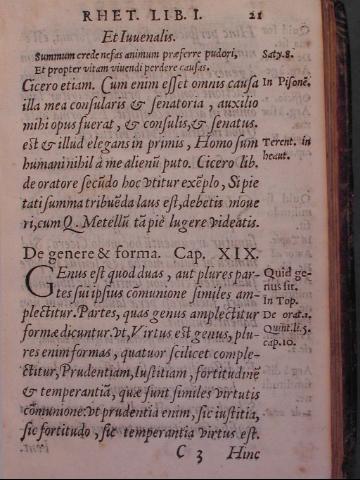 RHET. LIB. I. 21
Et Iuuenalis.
Summum crede nefas animum præferre pudori, Saty. 8.
Et propter vitam viuendi perdere causas.
Cicero etiam. Cum enim esset omnis causa In Pisonē.
illa mea consularis & senatoria, auxilio
mihi opus fuerat, & consulis, & senatus.
est & illud elegans in primis, Homo sum Terent. in
humani nihil à me alienū puto. Cicero lib. heaut.
de oratore secūdo hoc vtitur exēplo, Si pie
tati summa tribuēda laus est, debetis moue
ri, cum Q. Metellū tā piè lugere videatis.
De genere & forma. Cap. XIX.
GEnus est quod duas, aut plures par- Quid ge-
tes sui ipsius cōmunione similes am- nus sit.
plectitur. Partes, quas genus amplectitur In Top.
formæ dicuntur. vt, Virtus est genus, plu- De orat. 1.
res enim formas, quatuor scilicet comple- Quint. li. 5.
ctitur, Prudentiam, Iustitiam, fortitudinē cap. 10.
& temperantiā, quæ sunt similes virtutis
cōmunione: vt prudentia enim, sic iustitia,
sic fortitudo, sic temperantia virtus est.
C 3 Hinc